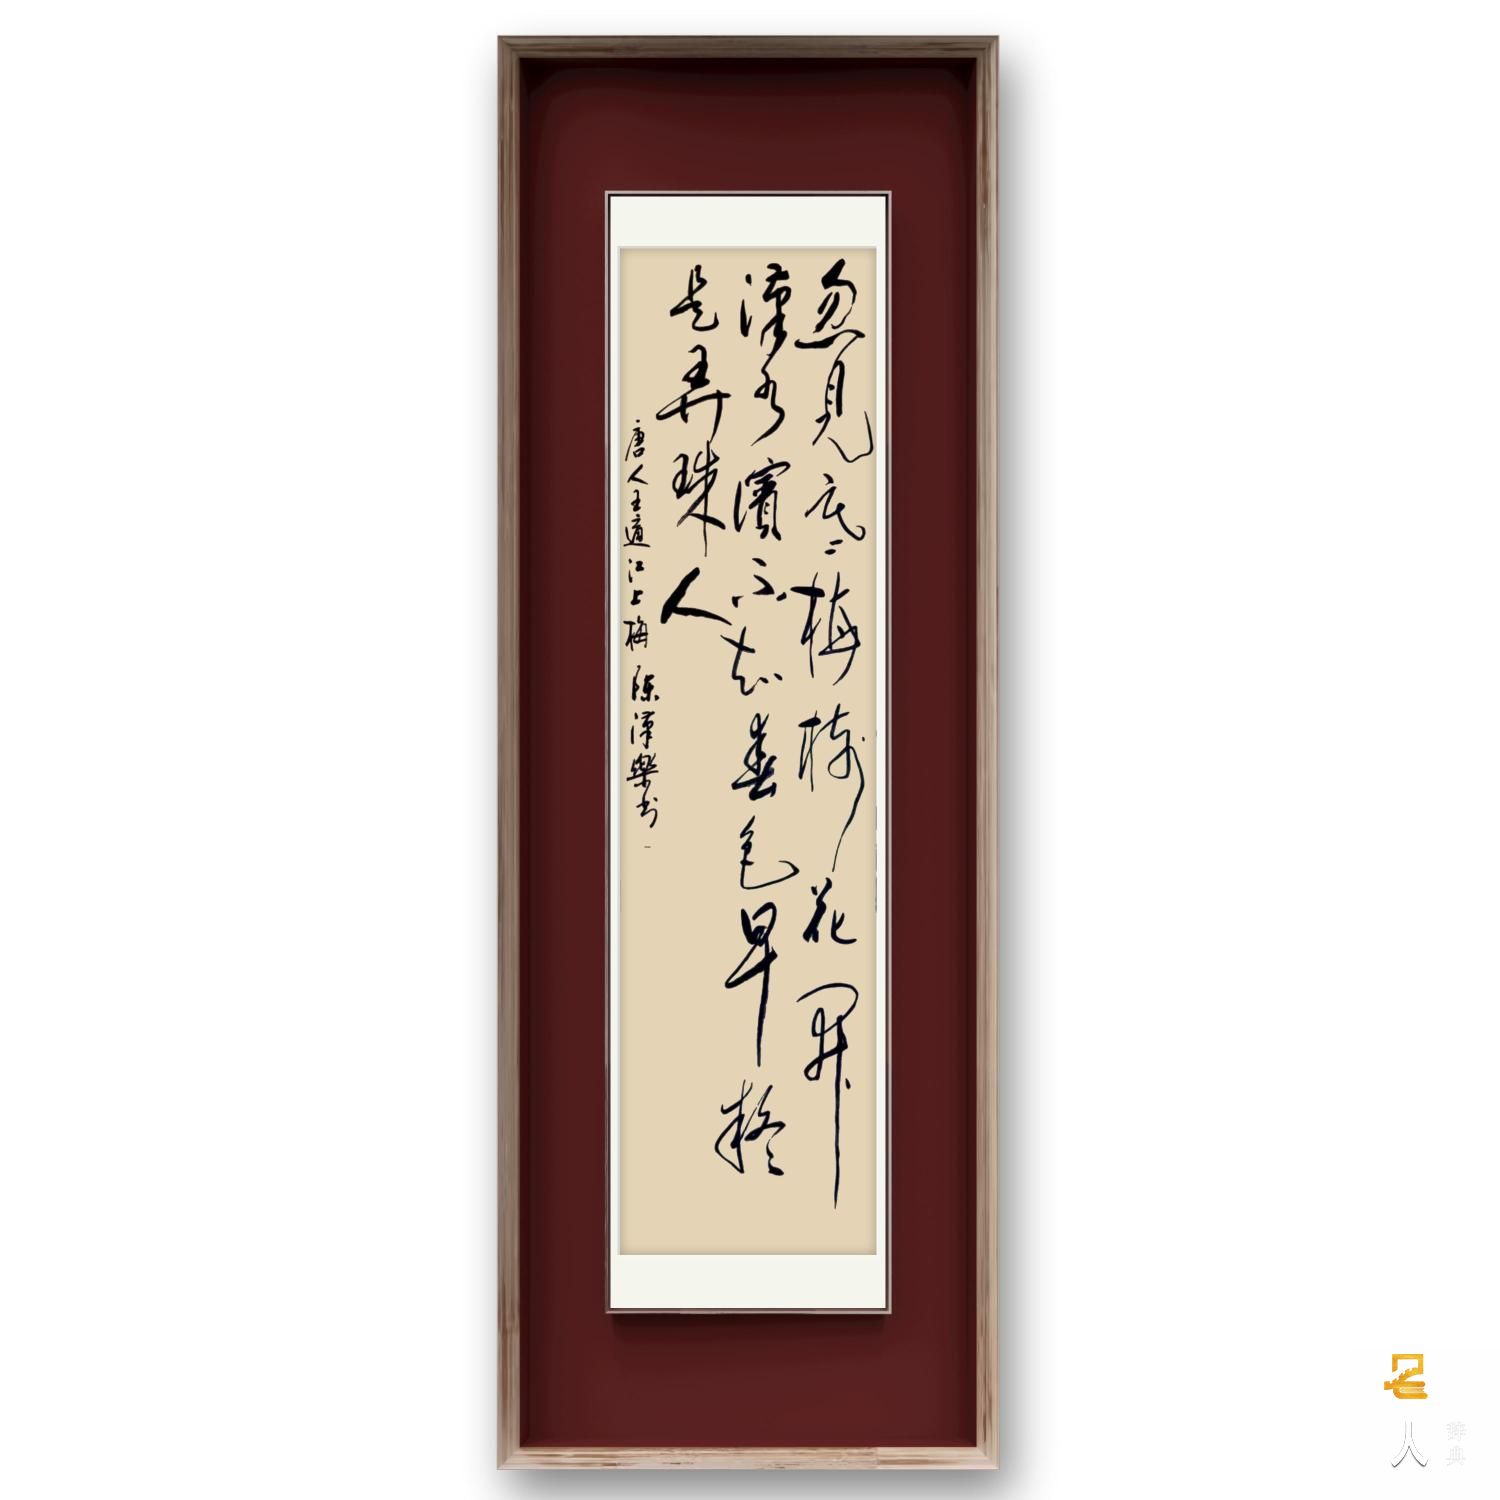 忽见寒梅树花开
汉水滨不知春色早疑
是弄珠人
唐人王适江上梅 陈汉乐书
人
辞典